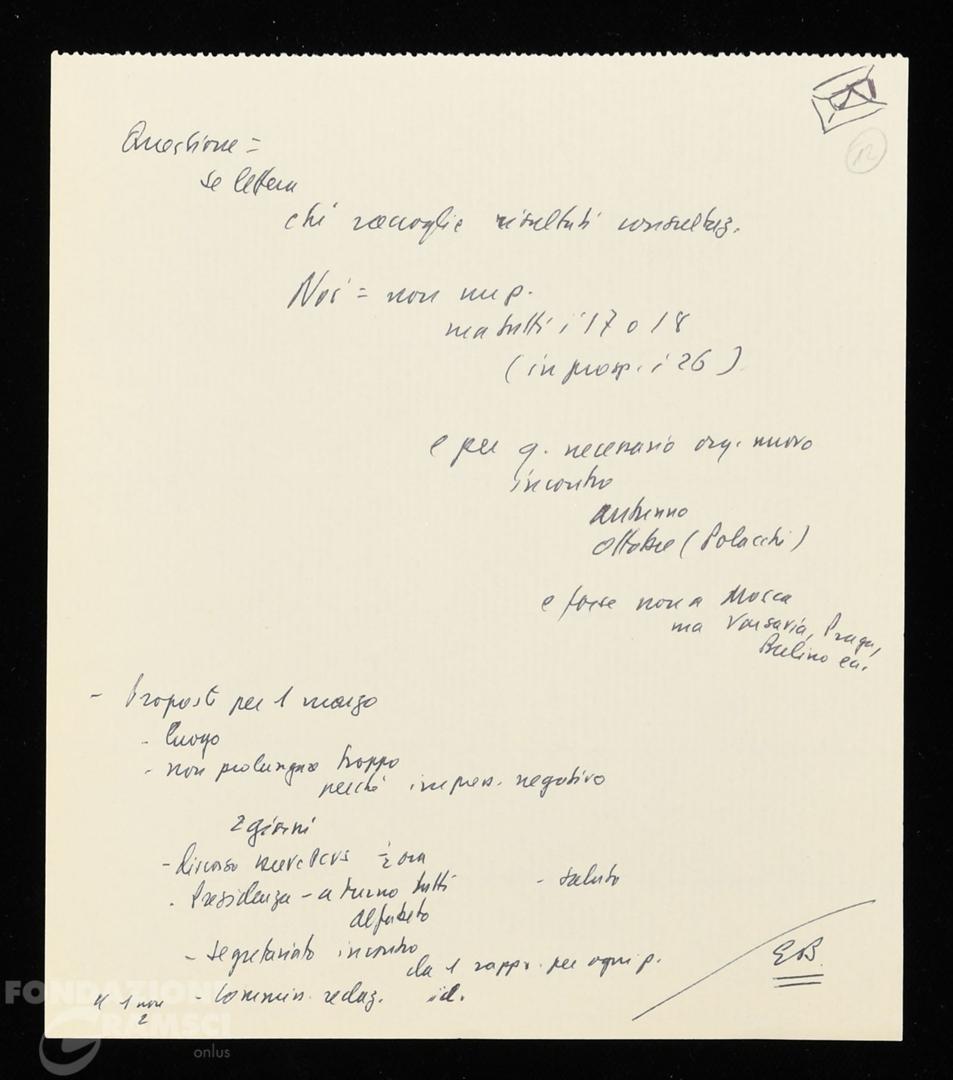 12
Questione =
se lettera
chi raccoglie risultati consultaz.
Noi = non un p.
ma tutti i 17 o 18
(in prosp. i 26)
e per q. necessario org. nuovo
incontro
autunno
ottobre (Polacchi)
e forse non a Mosca
ma Varsavia, Praga,
Berlino ecc.
- Proposte per 1 marzo
- luogo
- non prolungare troppo
perché impress. negativa
2 giorni
- discorso PCUS ½ ora
- saluto
- Presidenza - a turno tutti
alfabeto
- Segretariato incontro
da 1 rappr. per ogni p.
- Commiss. redaz. id.
EB.
FONDAZIONE
GRAMSCI
onlus